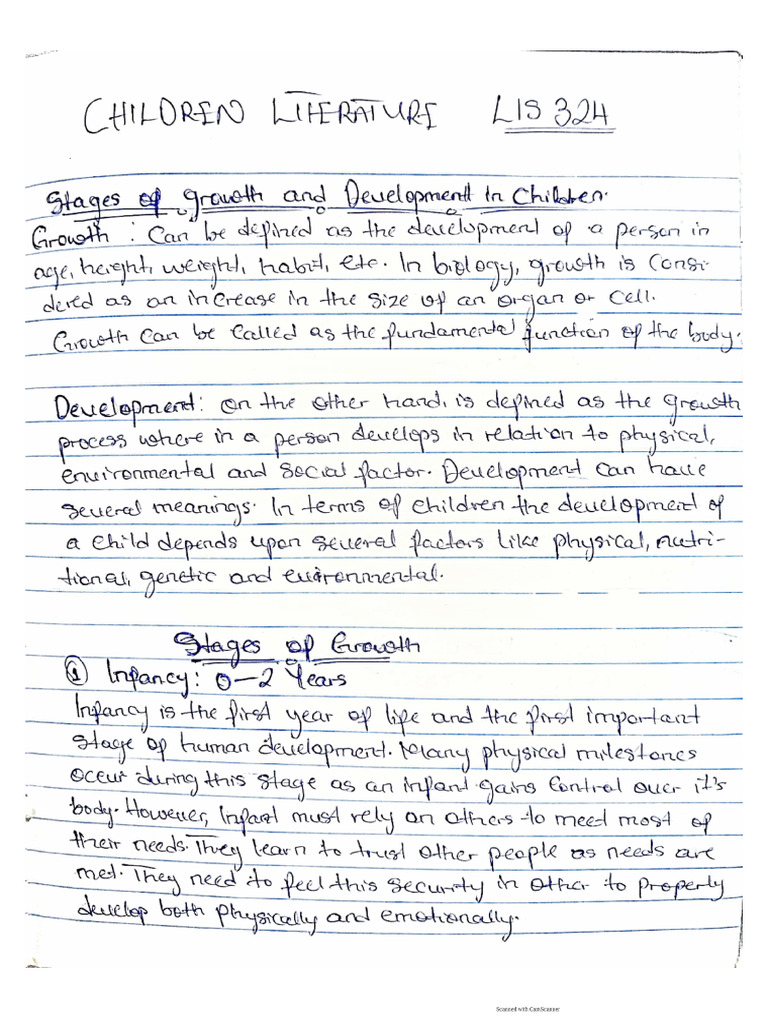 CHILDREN LITERATURE LIS 324
Stages of growth and Development in Children.
Growth : Can be defined as the development of a person in
age, height, weight, habit, etc. In biology, growth is Consi-
dered as an increase in the size of an organ or cell.
Growth can be called as the fundamental function of the body.
Development: on the other hand, is defined as the growth
process where in a person develops in relation to physical,
environmental and social factor. Development can have
several meanings. In terms of children the development of
a child depends upon several factors like physical, nutri-
tional, genetic and environmental.
Stages of Growth
① Infancy: 0-2 Years
Infancy is the first year of life and the first important
stage of human development. Many physical milestones
occur during this stage as an infant gains control over it's
body. However, Infant must rely on others to meet most of
their needs. They learn to trust other people as needs are
met. They need to feel this security in other to properly
develop both physically and emotionally.
Scanned with CamScanner